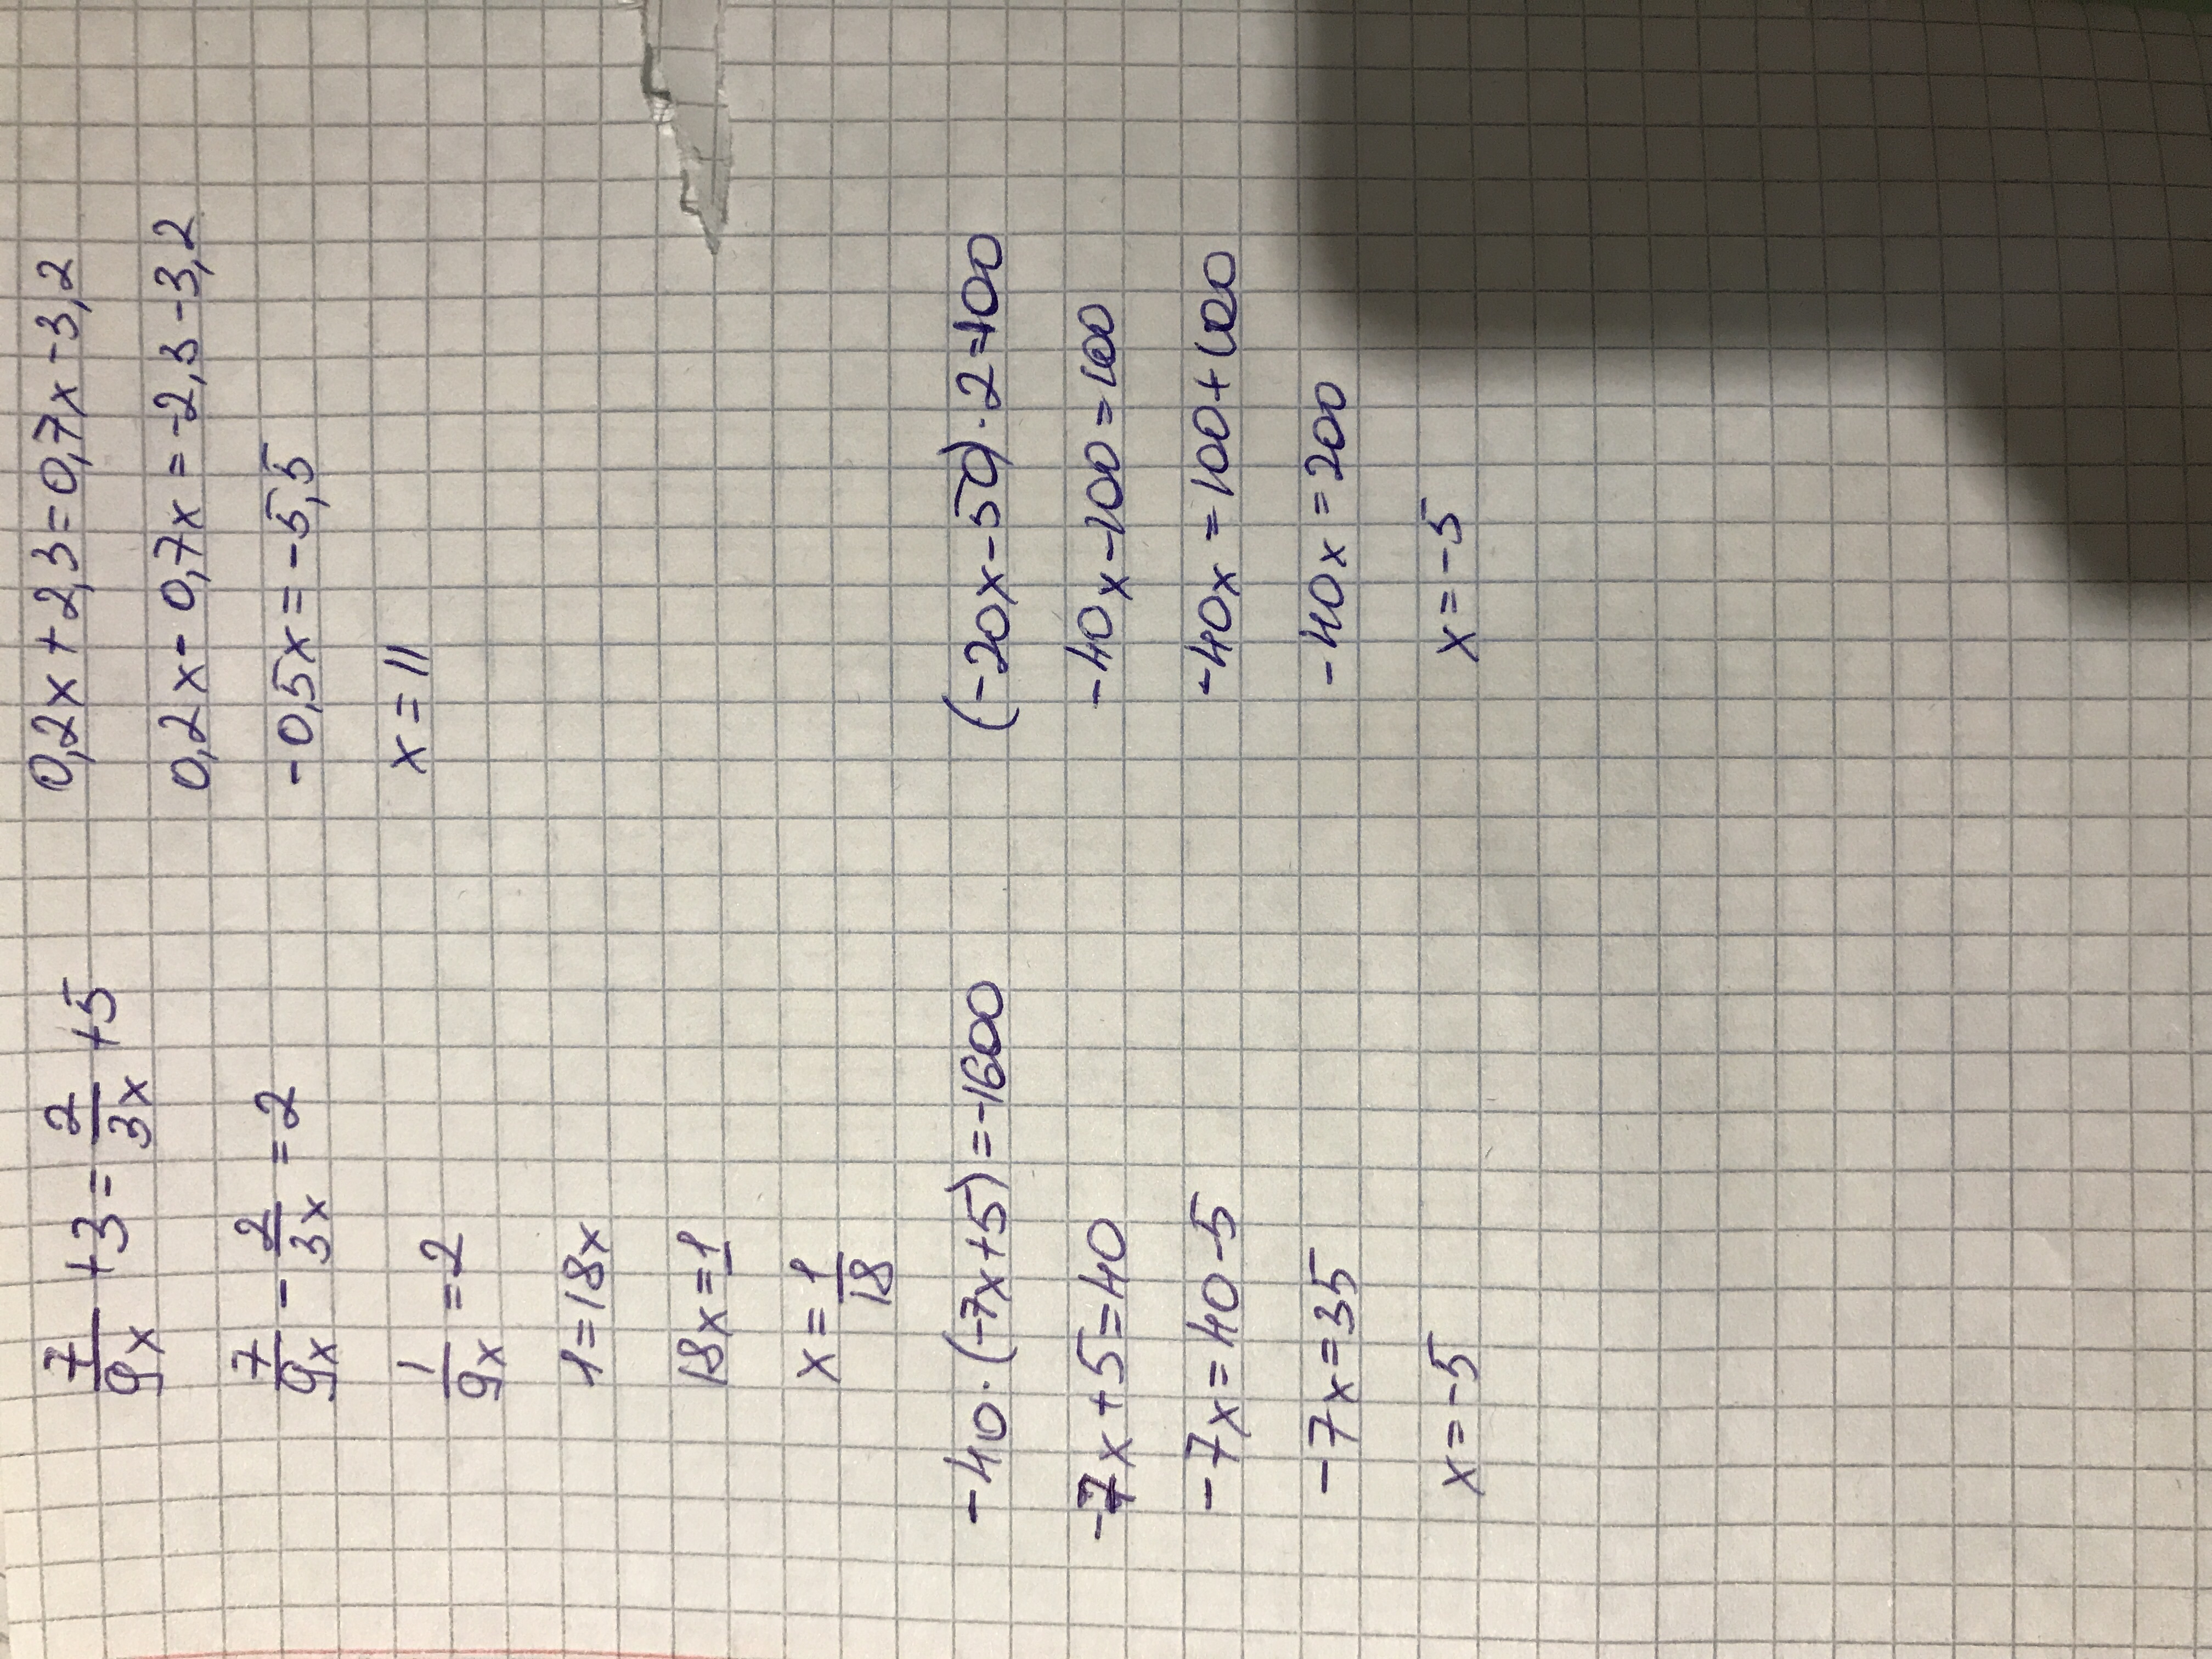 7/9x +3 = 2/3x +5
7/9x - 2/3x = 2
1/9x = 2
1=18x
18x=1
x= 1/18
0,2x+2,3=0,7x-3,2
0,2x-0,7x=-2,3-3,2
-0,5x=-5,5
x=11
-40·(-7x+5)=-1600
-7x+5=40
-7x=40-5
-7x=35
x=-5
(-20x-50)·2=100
-40x-100=100
-40x=100+100
-40x=200
x=-5